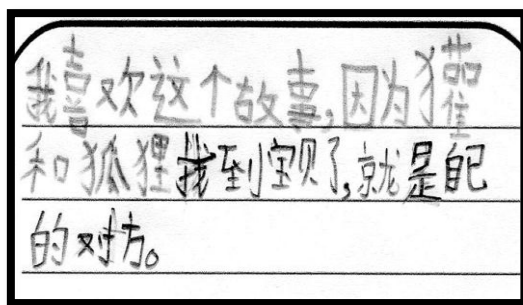 我喜欢这个故事,因为獾
和狐狸找到宝贝了,就是自己
的对方。